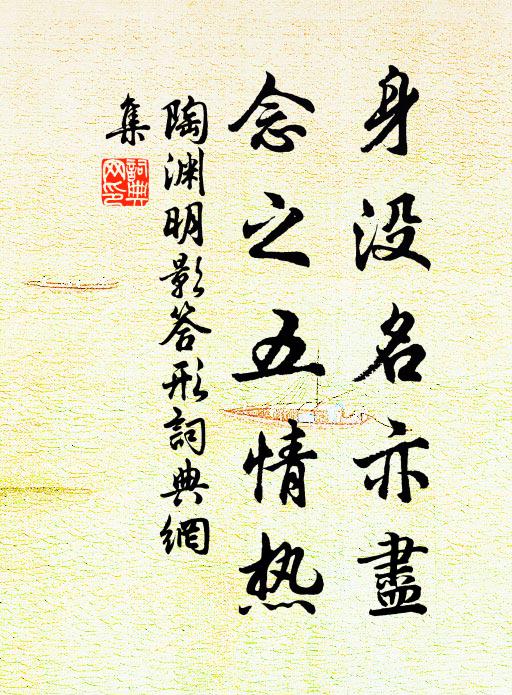 身没名亦盡
念之五情热
陶渊明影答形詞典網
集
詞典
网印